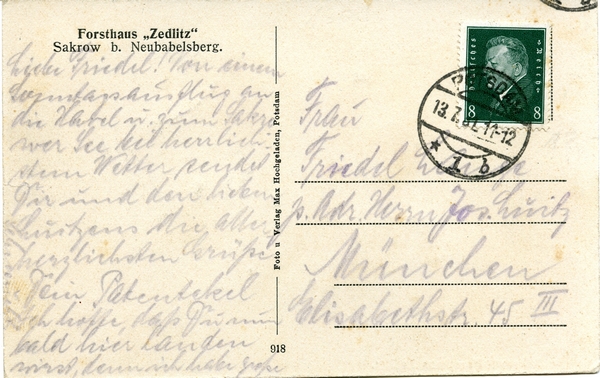 Forsthaus „Zedlitz"
Sakrow b. Neubabelsberg.
Liebe Friedel! Von einem
Sonntagsausflug an
die Havel u. zum Sakro-
wer See bei herrlich-
stem Wetter sendet
Dir und den lieben
die aller-
herzlichsten Grüße
Dein Patenekel
Ich hoffe, daß Du nun
bald hier landen
wirst, denn ich habe große
Foto u Verlag Max Hochgeladen, Potsdam
918
Deutsches Reich
8 8
POTSDAM
13.7. 11-12
* 1 b
Frau
Friedel
p. Adr. Herrn Jos.
München
Elisabethstr. 45 III